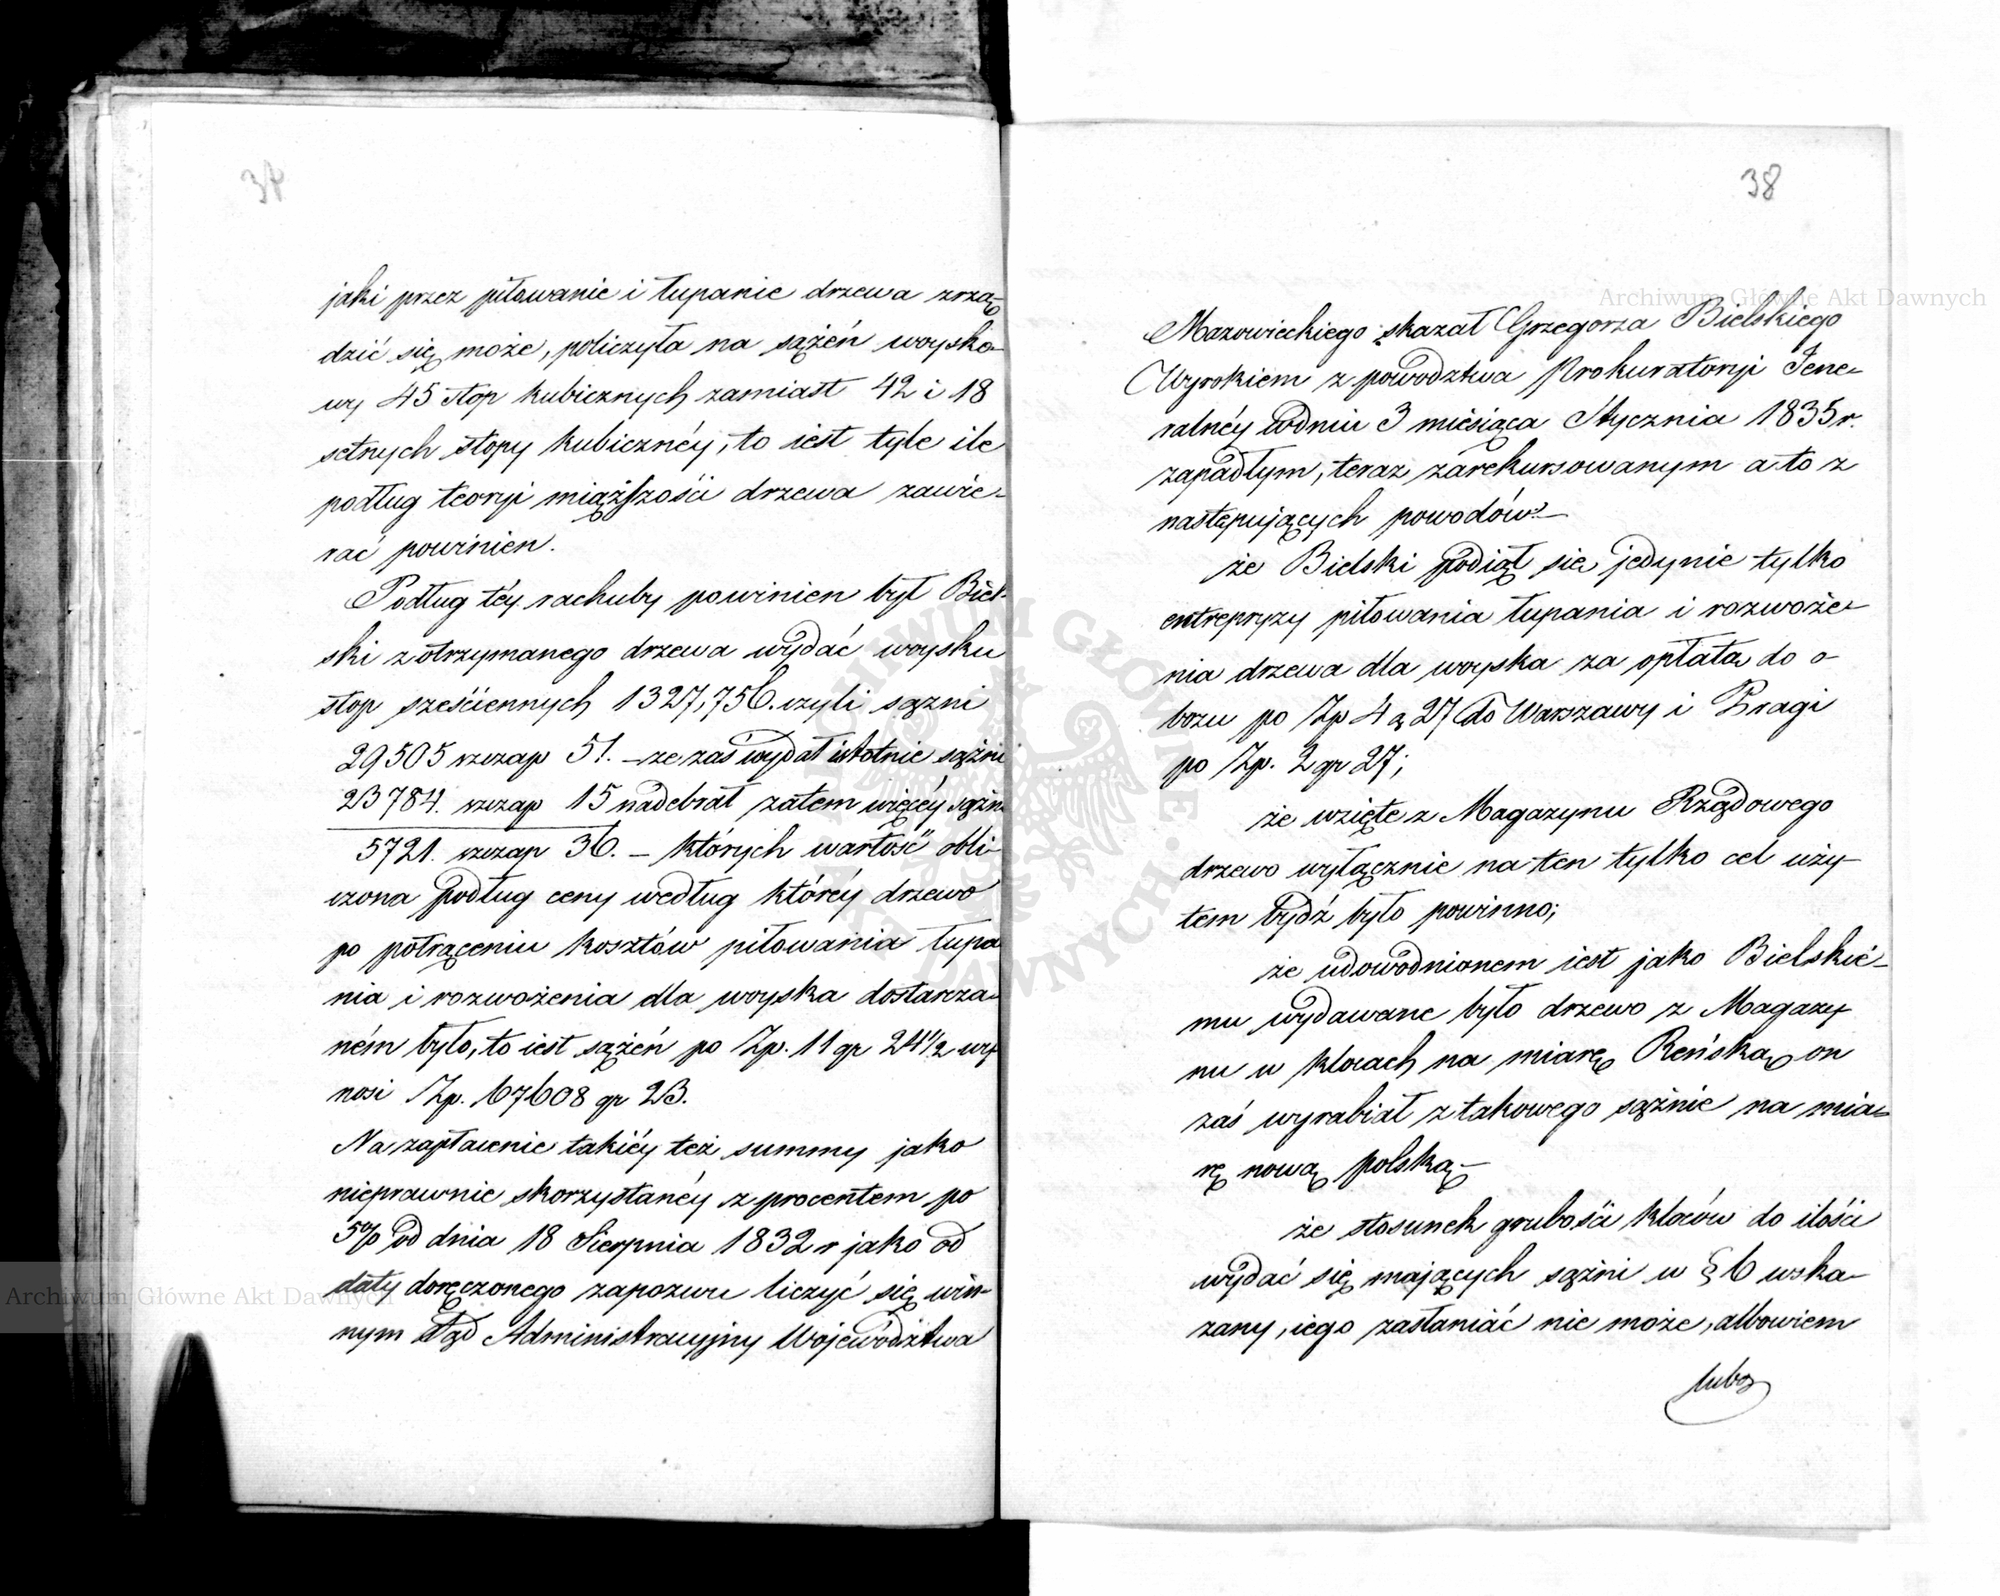 37
jaki przez piłowanie i łupanie drzewa zrzą-
dzić się może, policzyła na sążeń woysko-
wy 45 stop kubicznych zamiast 42 i 18
setnych stopy kubicznéy, to iest tyle ile
podług teoryi miąższości drzewa zawie-
rać powinien.
Podług téy rachuby powinien był Biel-
ski z otrzymanego drzewa wydać woysku
stop sześciennych 1327,756. czyli sążni
29505 szczap 51. – że zaś wydał istotnie sążni
23784. szczap 15 nadebrał zatem więcéy sążni
5721. szczap 36. – których wartość obli-
czona podług ceny według któréy drzewo
po potrąceniu kosztów piłowania łupa
nia i rozwożenia dla woyska dostarcza-
ném było, to iest sążeń po Zp. 11 gr 24½ wy
nosi Zp. 67608 gr 23.
Na zapłacenie takiéy też summy jako
nieprawnie skorzystanéy z procentem po
5% od dnia 18 Sierpnia 1832 r jako od
daty doręczonego zapozwu liczyć się win-
nym Sąd Administracyjny Województwa
38
Mazowieckiego skazał Grzegorza Bielskiego
Wyrokiem z powodztwa Prokuratoryi Jene-
ralnéy w dniu 3 miesiąca Stycznia 1835 r.
zapadłym, teraz zarekursowanym a to z
następujących powodów:–
że Bielski podiął się jedynie tylko
entrepryzy piłowania łupania i rozwoże-
nia drzewa dla woyska za opłatą do o-
bozu po Zp 4 g 27 do Warszawy i Pragi
po Zp. 2 gr 27;
że wzięte z Magazynu Rządowego
drzewo wyłącznie na ten tylko cel uży-
tem bydź było powinno;
że udowodnionem iest jako Bielskie-
mu wydawane było drzewo z Magazy
nu w klocach na miarę Reńską on
zaś wyrabiał z takowego sążnie na mia-
rę nową polską–
że stosunek grubości kloców do ilości
wydać się mających sążni w § 6 wska-
zany, iego zasłaniać nie może, albowiem
Archiwum Główne Akt Dawnych
Archiwum Główne Akt Dawnych
ARCHIWUM GŁÓWNE AKT DAWNYCH